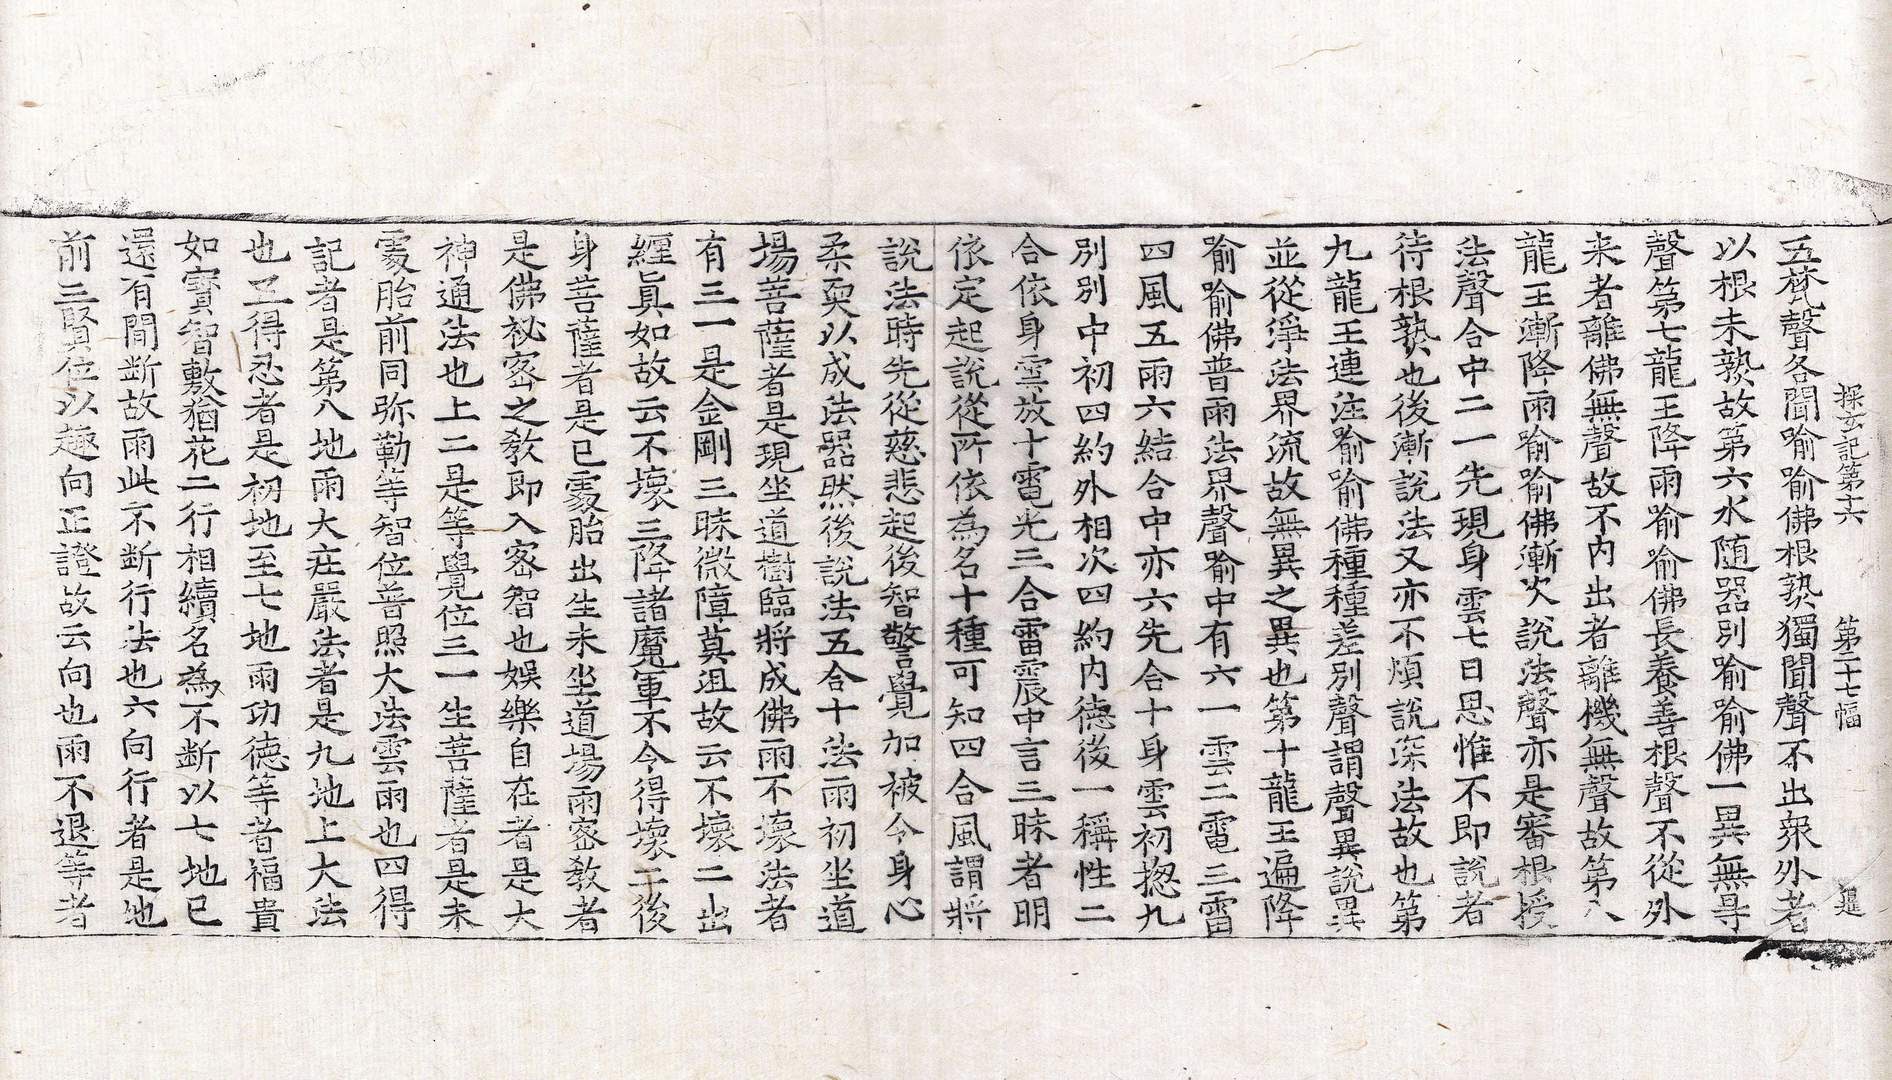 探玄記第十六　第二十七幅　暹
五梵聲各聞喻喻佛根熟獨聞聲不出衆外者
以根未熟故第六水随器別喻喻佛一異無导
聲第七龍王降雨喻喻佛長養善根聲不從外
来者離佛無聲故不內出者離機無聲故第八
龍王漸降雨喻喻佛漸次說法聲亦是審根授
法聲合中二一先現身雲七日思惟不即說者
待根熟也後漸說法又亦不煩說深法故也第
九龍王連注喻喻佛種種差別聲謂聲異說異
並從淨法界流故無異之異也第十龍王遍降
喻喻佛普雨法界聲喻中有六一雲二電三雷
四風五雨六結合中亦六先合十身雲初揔九
別別中初四約外相次四約內德後一稱性二
合依身雲放十電光三合雷震中言三昧者明
依定起說從所依為名十種可知四合風謂將
說法時先從慈悲起後智警覺加被令身心
柔耎以成法器然後說法五合十法雨初坐道
場菩薩者是現坐道樹臨將成佛雨不壞法者
有三一是金剛三昧微障莫沮故云不壞二出
纏眞如故云不壞三降諸魔軍不令得壞二後
身菩薩者是已處胎出生未坐道場雨密教者
是佛祕密之教即入密智也娛樂自在者是大
神通法也上二是等覺位三一生菩薩者是未
處胎前同弥勒等智位普照大法雲雨也四得
記者是第八地雨大莊嚴法者是九地上大法
也五得忍者是初地至七地雨功德等者福貴
如寶智敷猶花二行相續名為不断以七地已
還有間断故雨此不断行法也六向行者是地
前三賢位以趣向正證故云向也雨不退等者